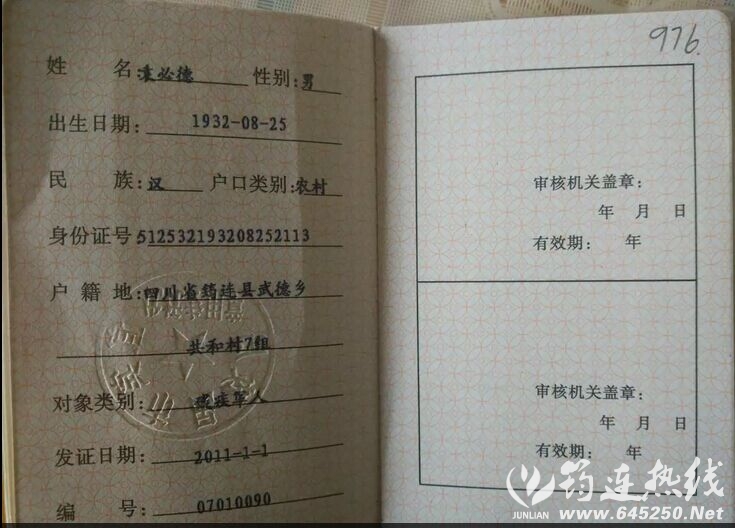 姓 名:袁必德 性别:男
出生日期: 1932-08-25
民 族:汉 户口类别:农村
身份证号:512532193208252113
户 籍 地:四川省筠连县武德乡
共和村7组
对象类别: 残疾军人
发证日期: 2011-1-1
编 号: 07010090
976.
审核机关盖章:
年 月 日
有效期: 年
审核机关盖章:
年 月 日
有效期: 年
筠连热线
JUNLIAN www.645250.Net